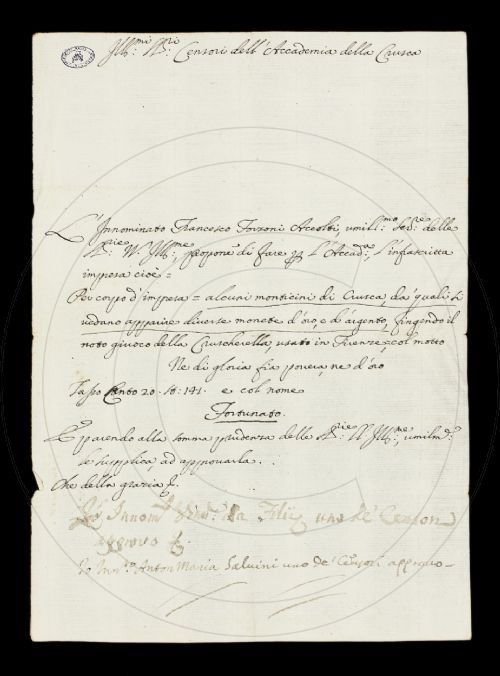 Ill:mi SS:ri Censori dell'Accademia della Crusca
L'Innominato Francesco Forzoni Accolti, umiliss:mo Ser:re delle
SS:rie VV: Ill:me, propone di fare p L'Accad:a L'infrascritta
impresa cioè =
Per corpo d'impresa = alcuni monticini di Crusca, da' quali si
vedano apparire diverse monete d'oro, e d'argento, fingendo il
noto giuoco della Cruscherella, usato in Firenze, col motto
Ne di gloria fia povera, ne d'oro
Tasso Canto 20. St: 141. e col nome
Fortunato.
E parendo alla somma prudenza delle SS:rie VV: Ill:me, umilm:e
le supplica, ad approvarla.
Che della grazia &.
Io Innom:o Vinc:o da Filic:a uno de' Censori
approvo &.
Io Inn:to Anton Maria Salvini uno de' Censori approvo-